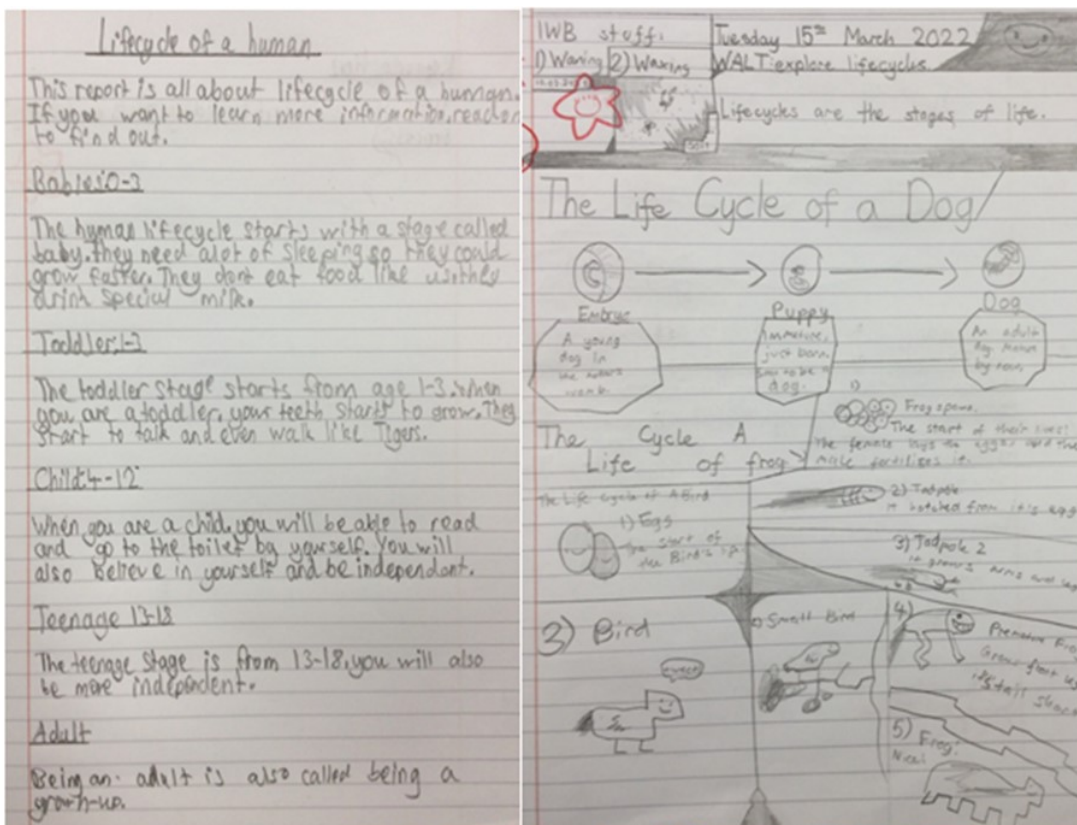 Lifecycle of a human
This report is all about lifecycle of a human.
If you want to learn more information, read on
to find out.
Babies:0-3
The human lifecycle starts with a stage called
baby. they need alot of sleeping so they could
grow faster. They dont eat food like us. they
drink special milk.
Toddler:1-3
The toddler stage starts from age 1-3. when
you are a toddler, your teeth starts to grow. They
start to talk and even walk like Tigers.
Child:4-12
When you are a child, you will be able to read
and go to the toilet by yourself. You will
also believe in yourself and be independant.
Teenage 13-18
The teenage stage is from 13-18, you will also
be more independent.
Adult
Being an adult is also called being a
grown-up.
IWB stuff:
1) Waning 2) Waxing
Tuesday 15th March 2022
WALT: explore lifecycles.
Lifecycles are the stages of life.
The Life Cycle of a Dog
Embryo
A young
dog in
the
womb.
Puppy
Immature,
just born
dog.
Dog
An adult
dog
by now.
The Cycle A
Life of frog
1)
Frogspawn.
The start of their lives!
The female lays the eggs and the
male fertilises it.
2) Tadpole
it hatched from it's egg
3) Tadpole 2
it grows arms and
4)
Frog
Grow
5) Frog:
The Life Cycle of A Bird
1) Eggs
The start of
the Bird's
2) Small Bird
3) Bird
tweet